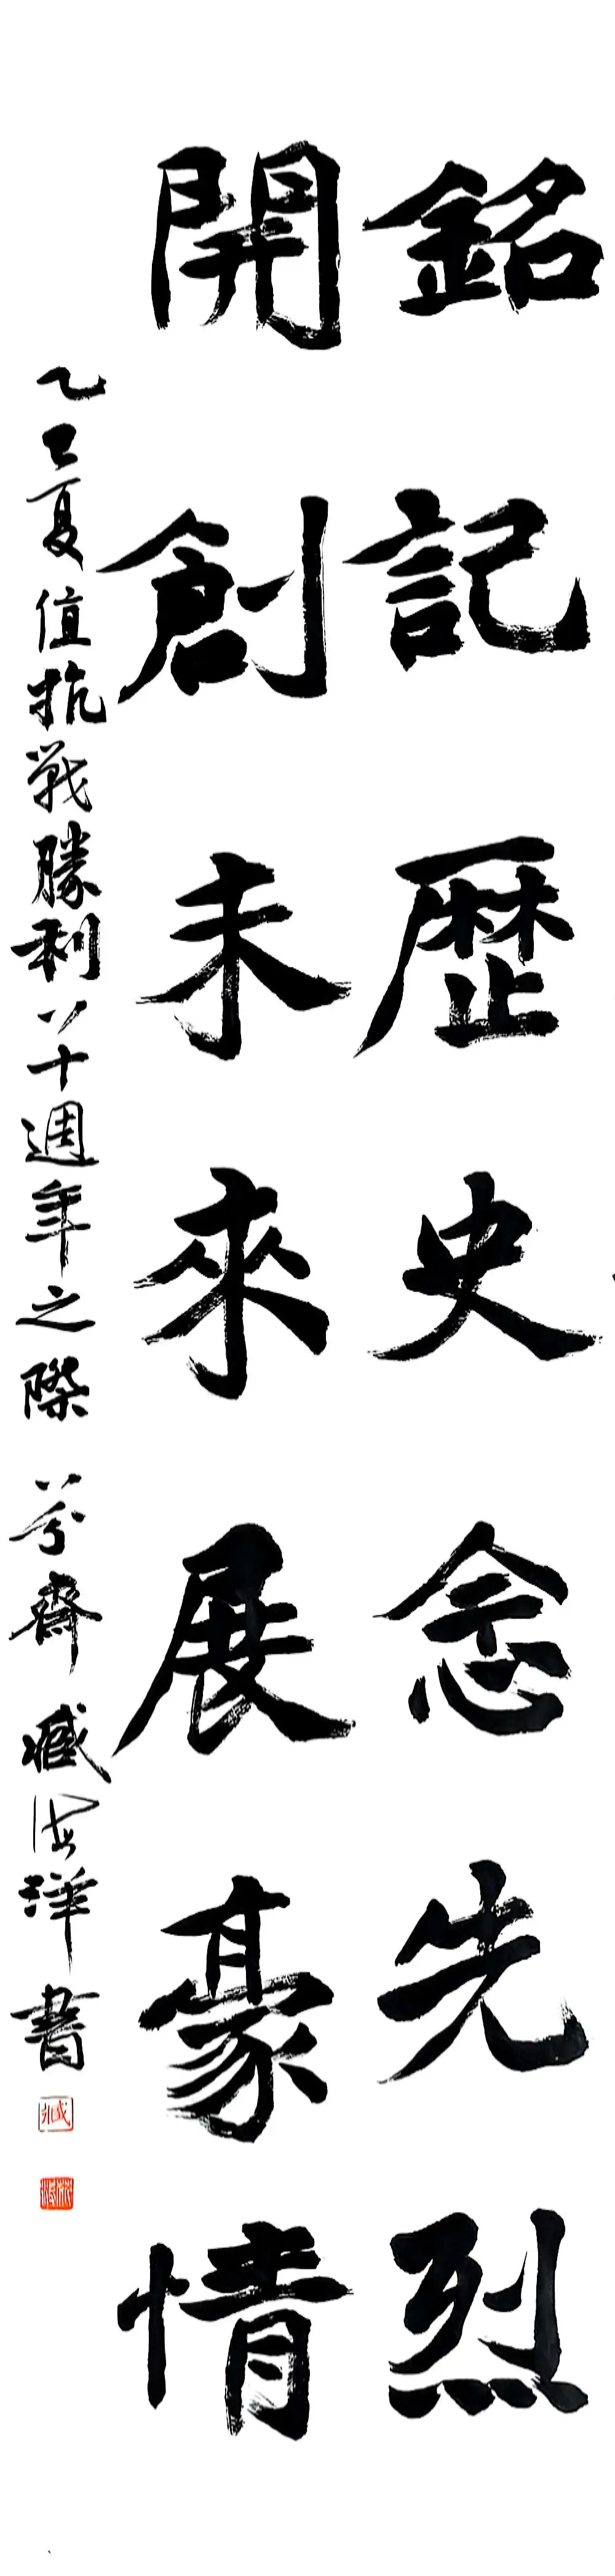 銘記歴史念先烈
開創未來展豪情
乙巳夏值抗戰勝利八十週年之際 兮齋臧海洋書
臧